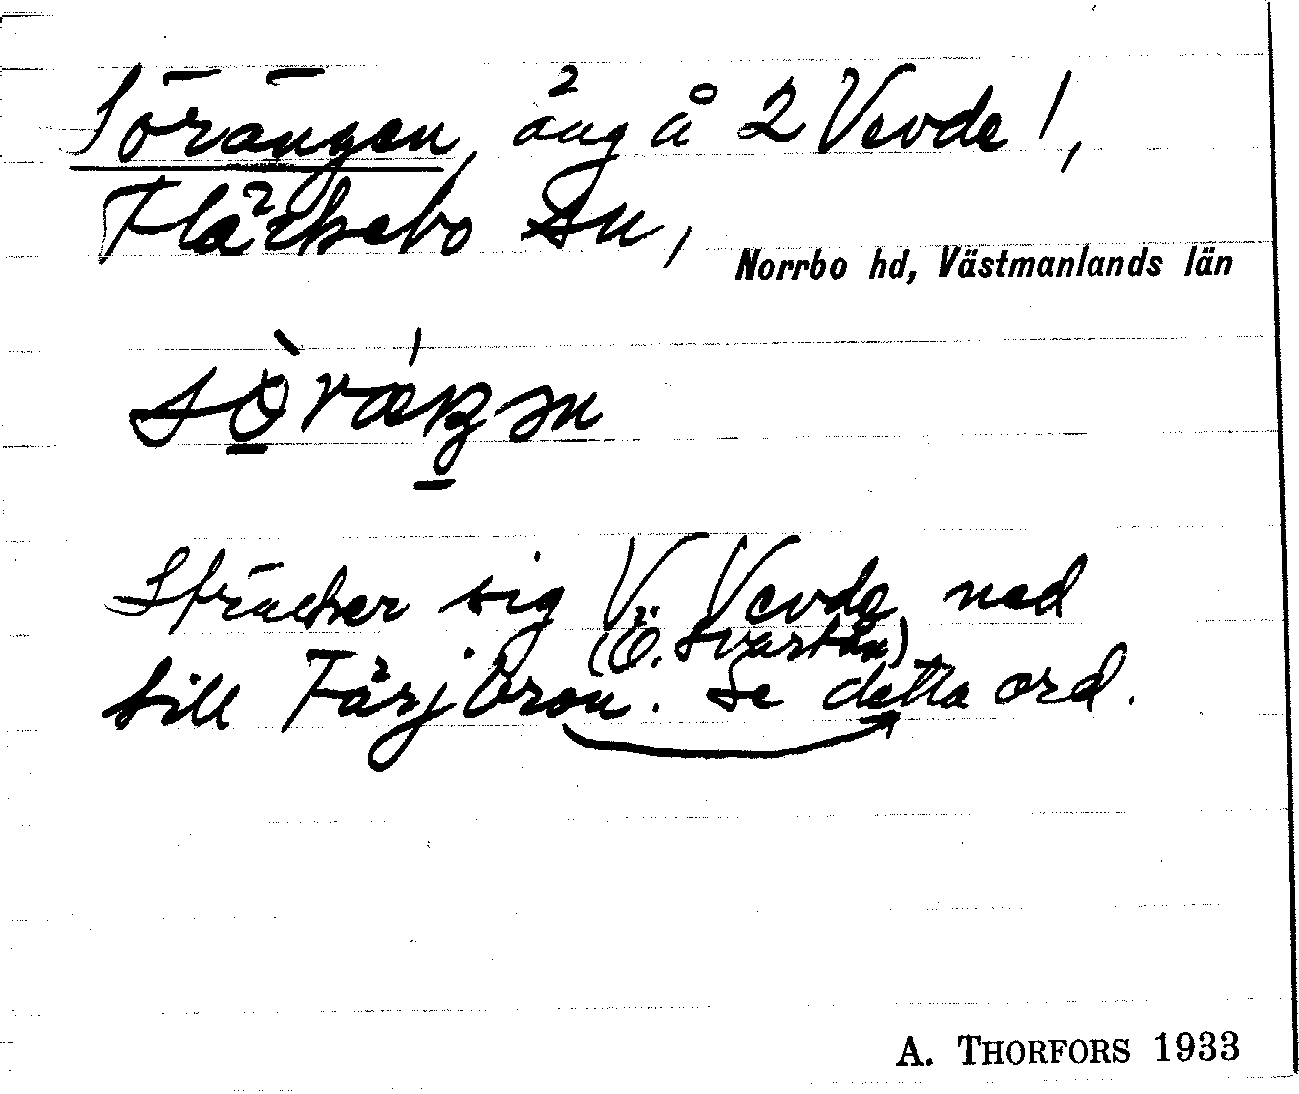 Sörängen, äng å 2 Vevde !,
Fläckebo sn,
Norrbo hd, Västmanlands län
Sträcker sig V. Vevde ned
(Ö. Svartån)
till Färjbron. Se detta ord.
A. THORFORS 1933